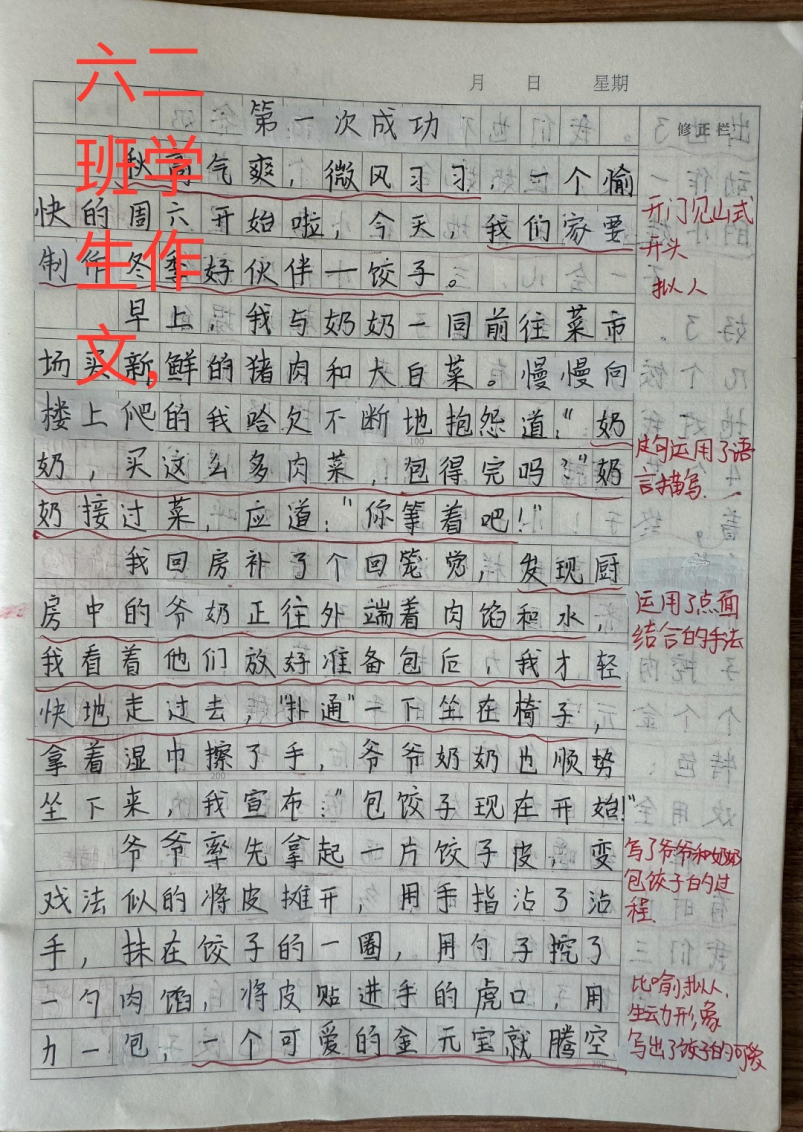 六二
班学
生作
文,
月 日 星期
修正栏
第一次成功
秋高气爽，微风习习，一个愉
快的周六开始啦，今天，我们家要
制作冬季好伙伴—饺子。
早上，我与奶奶一同前往菜市
场买新鲜的猪肉和大白菜。慢慢向
楼上爬的我哈欠不断地抱怨道:“奶
奶，买这么多肉菜，包得完吗?”奶
奶接过菜，应道:“你等着吧!”
我回房补了个回笼觉，发现厨
房中的爷奶正往外端着肉馅和水，
我看着他们放好准备包后，我才轻
快地走过去，“扑通”一下坐在椅子，
拿着湿巾擦了手，爷爷奶奶也顺势
坐下来，我宣布:“包饺子现在开始!”
爷爷率先拿起一片饺子皮，变
戏法似的将皮摊开，用手指沾了沾
手，抹在饺子的一圈，用勺子挖了
一勺肉馅，将皮贴进手的虎口，用
力一包，一个可爱的金元宝就腾空
100
200
开门见山式
开头
拟人
运用了语
言描写.
运用了点面
结合的手法
写了爷爷和奶奶
包饺子的过
程.
比喻,拟人.
生动形象
写出了饺子的可爱